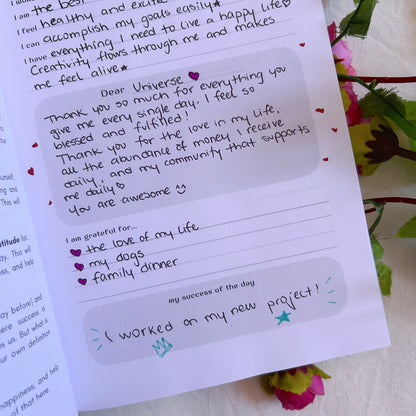 I am the best
I feel healthy and excite
I can accomplish my goals easily
I have everything I need to live a happy life
Creativity flows through me and makes
me feel alive
Dear Universe
Thank you so much for everything you
give me every single day. I feel so
blessed and fulfilled!
Thank you for the love in my life,
all the abundance of money I receive
daily, and my community that supports
me daily
You are awesome
I am grateful for...
the love of my life
my dogs
family dinner
my success of the day
I worked on my new project!
yourself,
ing and
This will
titude list
ay. This will
ess, and help
ay before) and
ere success is
s us. But what's
ur own definition.
happiness, and help
of that here.